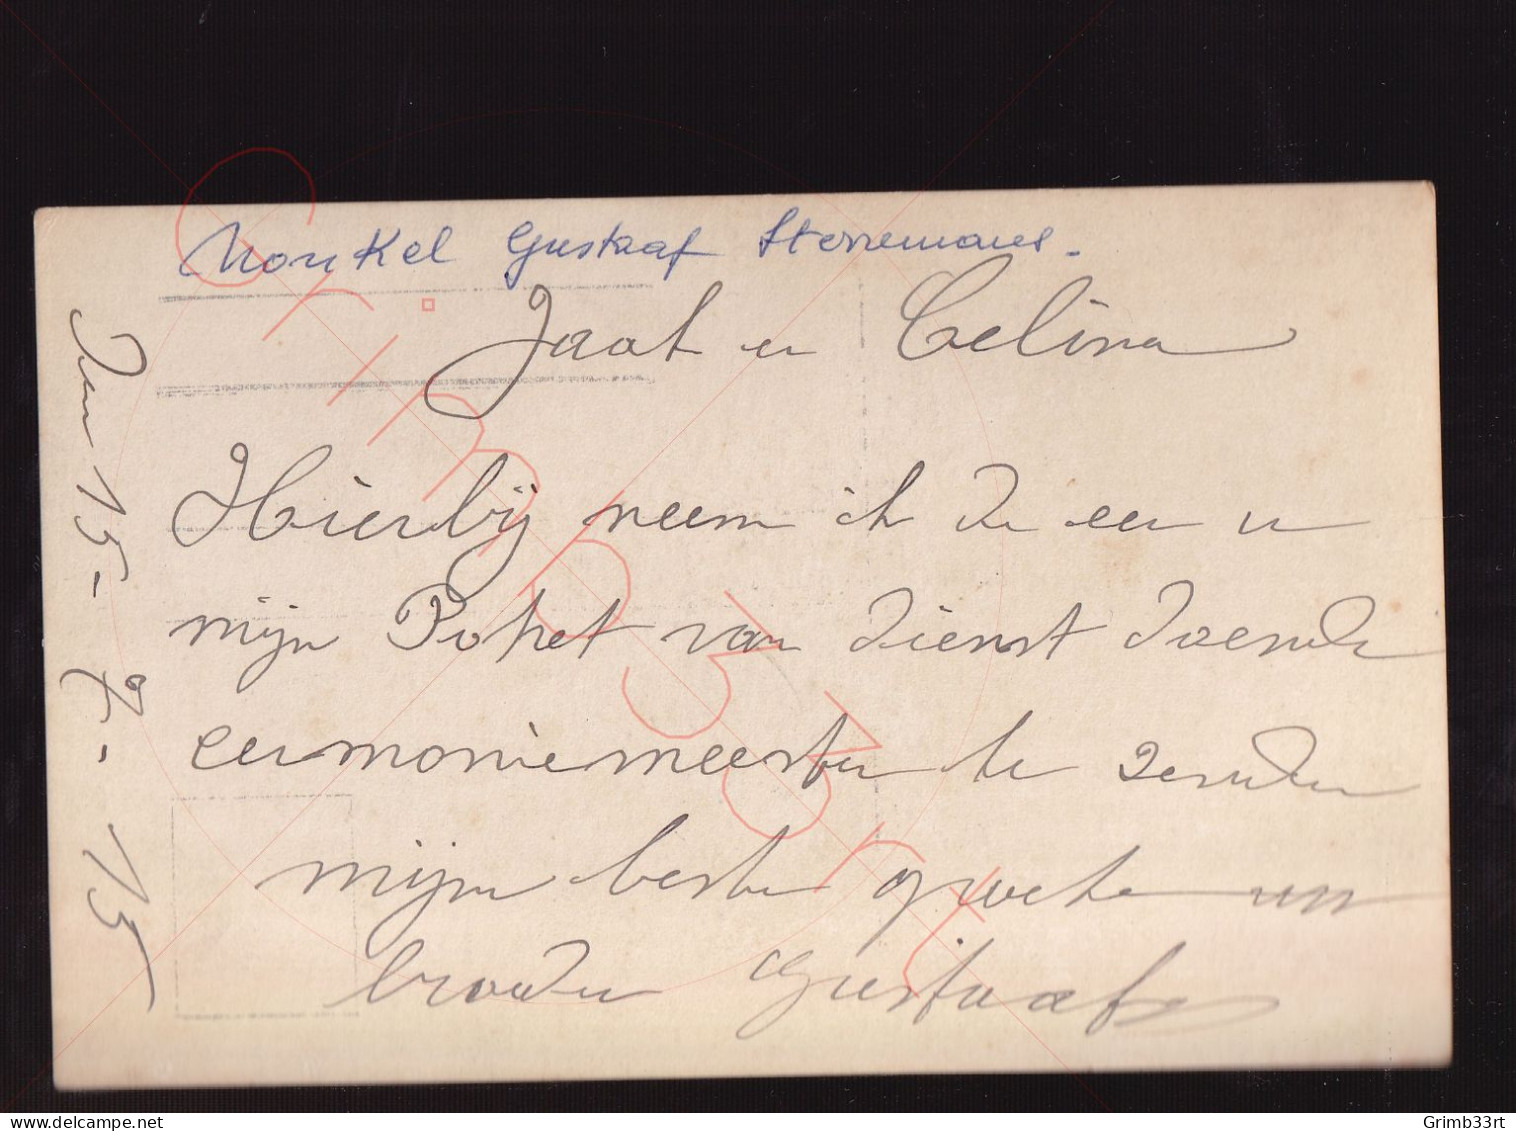 Nonkel Gustaaf Stevemans.
Jaak en Celina
Hierbij neem ik de eer u
mijn Potret van dienst doende
cermoniemeester te zenden
mijn beste groete uw
broeder Gustaaf
Den 15-7-15
Grimb33rt
Grimb33rt